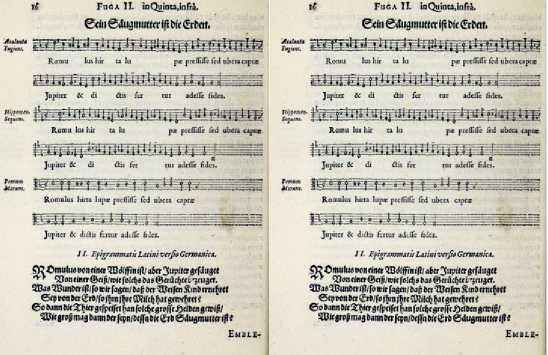 16 FUGA II. in Quinta, infrà.
Sein Säugmutter ist die Erden.
Atalanta
Fugiens.
Romu lus hir ta lu pæ pressisse sed ubera capræ
Jupiter & di ctis fer tur adesse fides.
Hippomen.
Sequens.
Romu lus hir ta lu pæ pressisse sed ubera capræ
Jupiter & di ctis fer tur adesse fides.
Pomum
Morans.
Romulus hirta lupæ pressisse sed ubera capræ
Jupiter & dictis fertur adesse fides.
II. Epigrammatis Latini versio Germanica.
ROmulus von einer Wölffin ist/ aber Jupiter gesäuget
Von einer Geiß/ wie solchs das Gerüchte bezeuget.
Was Wunder ist/ so wir sagen/ daß der Weisen Kind ernehret
Sey von der Erd/ so ihm ihr Milch hat gewehret?
So dann die Thier gespeiset han solche grosse Helden gewiß/
Wie groß mag dann der seyn/ dessn die Erd Säugmutter ist?
EMBLE-
16 FUGA II. in Quinta, infrà.
Sein Säugmutter ist die Erden.
Atalanta
Fugiens.
Romu lus hir ta lu pæ pressisse sed ubera capræ
Jupiter & di ctis fer tur adesse fides.
Hippomen.
Sequens.
Romu lus hir ta lu pæ pressisse sed ubera capræ
Jupiter & di ctis fer tur adesse fides.
Pomum
Morans.
Romulus hirta lupæ pressisse sed ubera capræ
Jupiter & dictis fertur adesse fides.
II. Epigrammatis Latini versio Germanica.
ROmulus von einer Wölffin ist/ aber Jupiter gesäuget
Von einer Geiß/ wie solchs das Gerüchte bezeuget.
Was Wunder ist/ so wir sagen/ daß der Weisen Kind ernehret
Sey von der Erd/ so ihm ihr Milch hat gewehret?
So dann die Thier gespeiset han solche grosse Helden gewiß/
Wie groß mag dann der seyn/ dessn die Erd Säugmutter ist?
EMBLE-